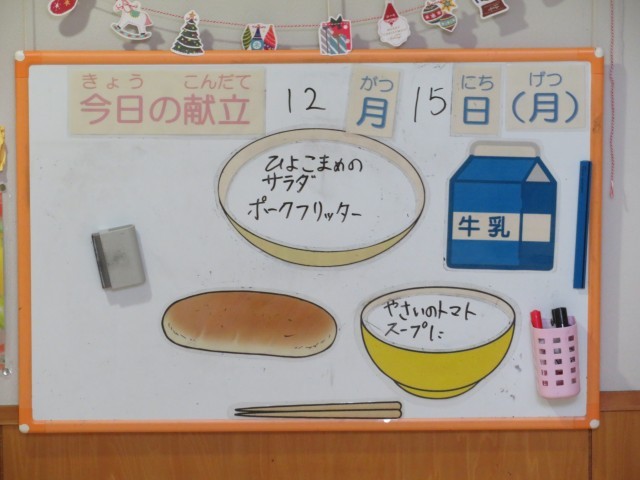 きょう こんだて
今日の献立
12
がつ
月
15
にち
日
げつ
(月)
ひよこまめの
サラダ
ポークフリッター
牛乳
やさいのトマト
スープに